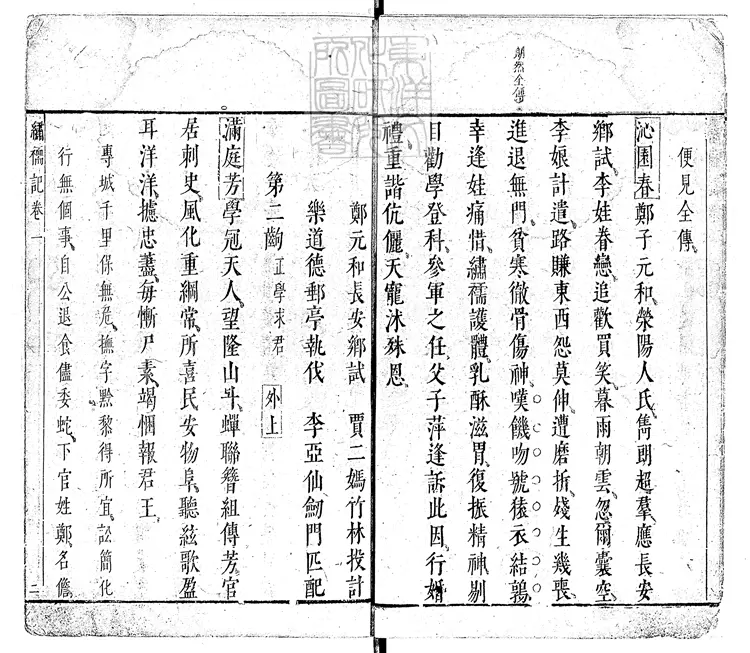 便見全傳
沁園春鄭子元和滎陽人氏雋朗超羣應長安
鄉試李娃眷戀追歡買笑暮雨朝雲忽爾囊空
李娘計遣路賺東西怨莫伸遭磨折殘生幾喪
進退無門貧寒徹骨傷神嘆饑吻號猿衣結鶉
幸逢娃痛惜繡襦護體乳酥滋胃復振精神剔
目勸學登科參軍之任父子萍逢訴此因行婚
禮重諧伉儷天寵沐殊恩
全傳
鄭元和長安鄉試 賈二媽竹林投計
樂道德郵亭執伐 李亞仙劒門匹配
第二齣 正學求君 外上
滿庭芳學冠天人望隆山斗蟬聯簪組傳芳官
居刺史風化重綱常所喜民安物阜聽絃歌盈
耳洋洋攄忠藎每慚尸素竭悃報君王
專城千里保無危撫字黔黎得所宜訟簡化
行無個事自公退食儘委蛇下官姓鄭名儋
繡襦記卷一
二